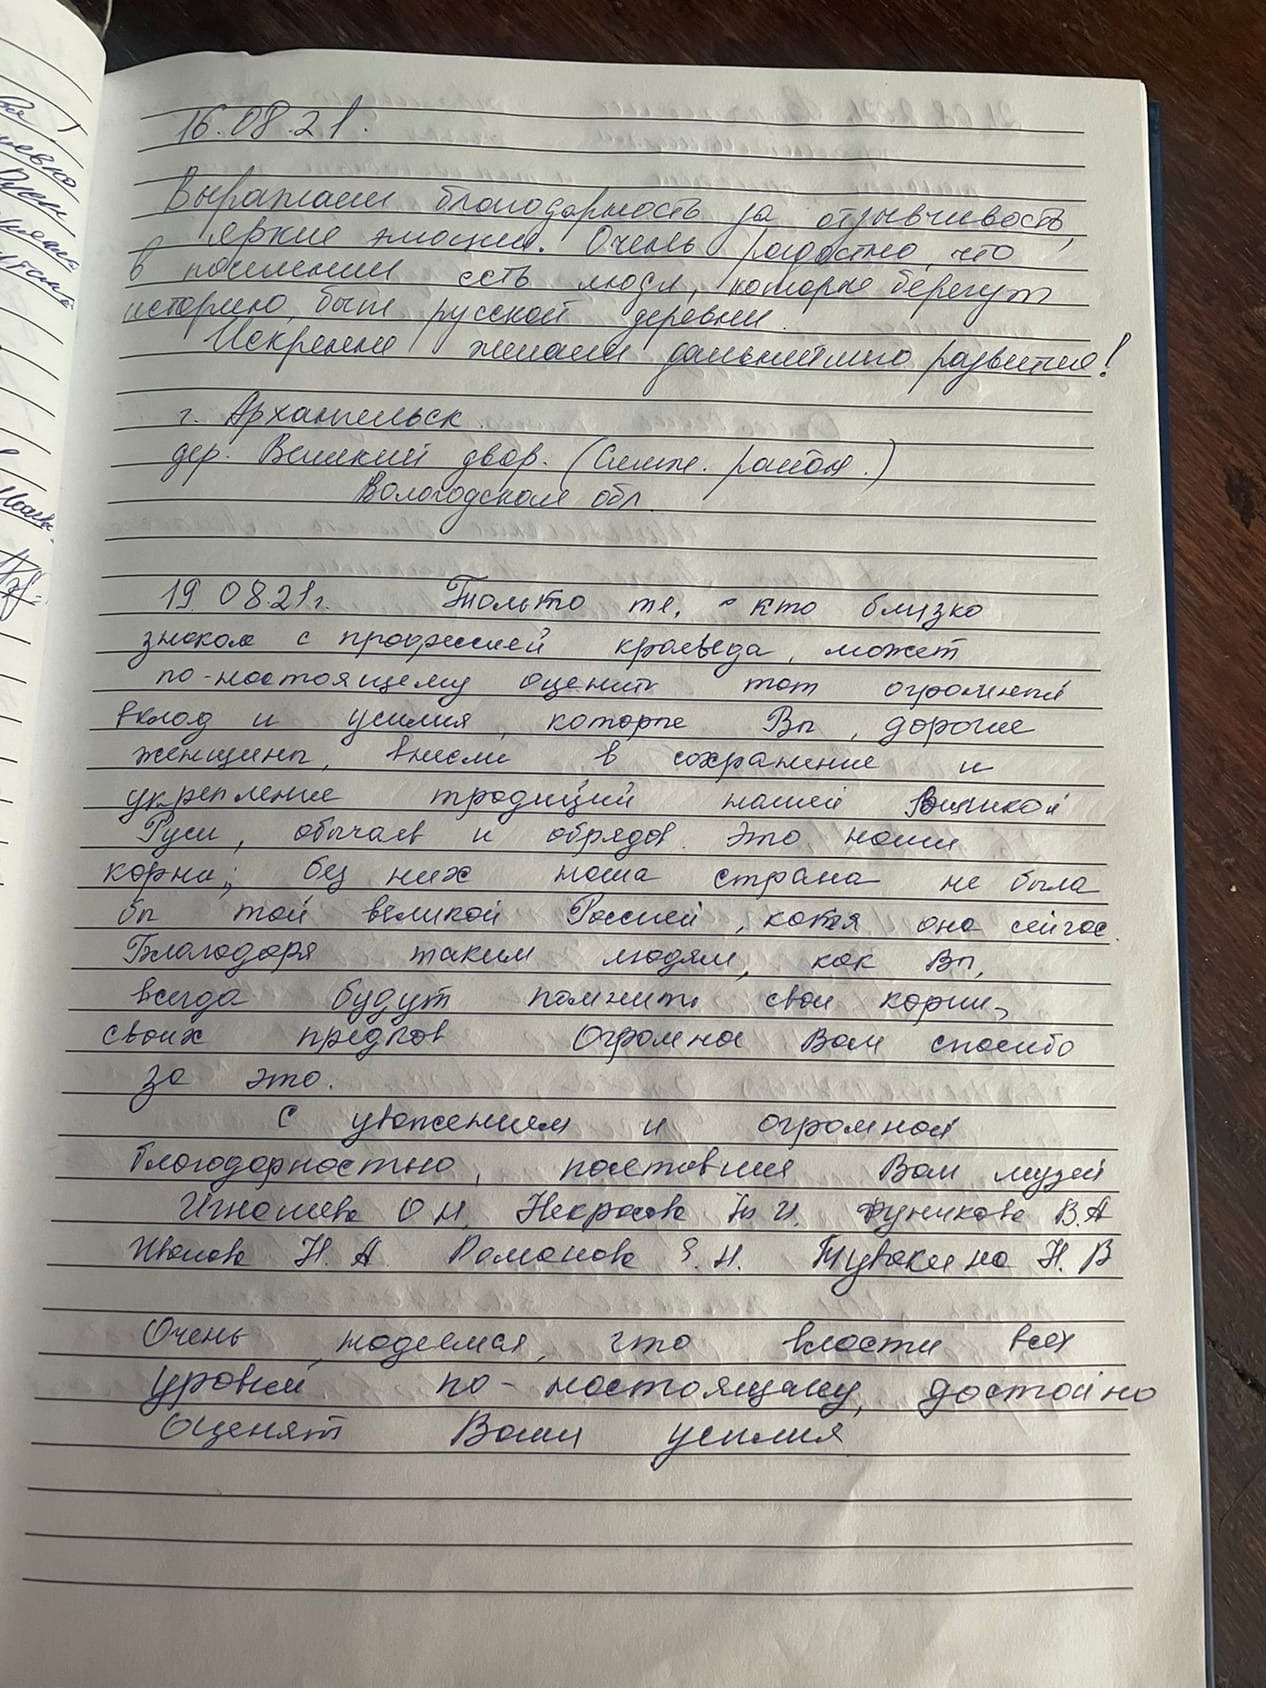 16.08.21.
Выражаем благодарность за отзывчивость,
яркие эмоции. Очень радостно, что
в поселении есть люди, которые берегут
историю, быт русской деревни.
Искренне желаем дальнейшего развития!
г. Архангельск
дер. Великий двор. (Сямж. район.)
Вологодская обл.
19.08.21г. Только те, кто близко
знаком с профессией краеведа, может
по-настоящему оценить тот огромный
вклад и усилия, которые Вы, дорогие
женщины, внесли в сохранение и
укрепление традиций нашей Великой
Руси, обычаев и обрядов. Это наши
корни, без них наша страна не была
бы той великой Россией, какая она сейчас.
Благодаря таким людям, как Вы,
всегда будут помнить свои корни,
своих предков Огромное Вам спасибо
за это.
С уважением и огромной
благодарностью, посетившие Ваш музей
Игнашева О.Н. Некрасова Ю.И. Фуникова В.А
Ивкова Н.А. Романова Е.Н. Н.В
Очень надеемся, что власти всех
уровней по-настоящему, достойно
оценят Ваши усилия